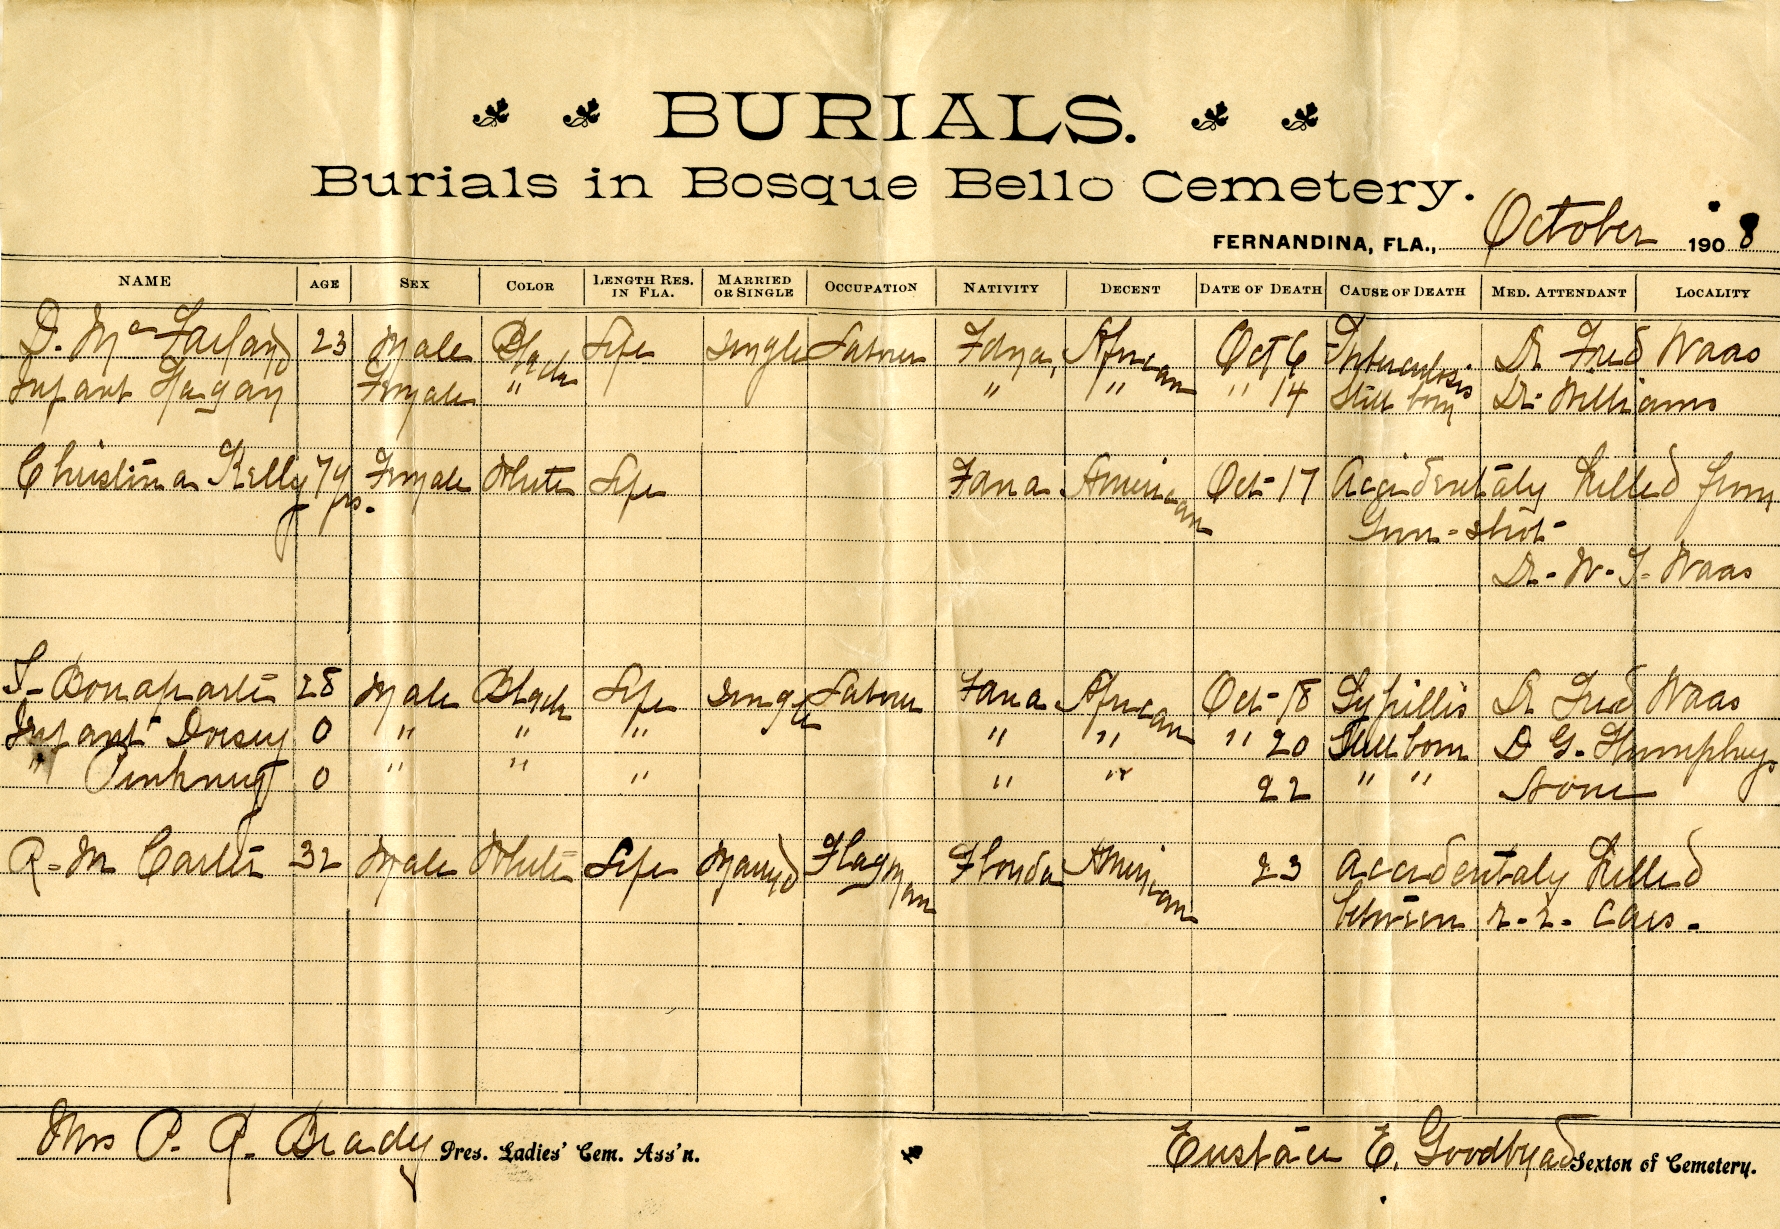 BURIALS.
Burials in Bosque Bello Cemetery.
FERNANDINA, FLA., October 1908
NAME AGE SEX COLOR LENGTH RES. IN FLA. MARRIED OR SINGLE OCCUPATION NATIVITY DECENT DATE OF DEATH CAUSE OF DEATH MED. ATTENDANT LOCALITY
D. Mc Farland 23 Male Black Life Single Laborer African Oct 6 Tuberculosis Dr. Fred Waas
Infant Hagan Female " " " " 14 Still born Dr. Williams
Christina Kelly 74 yrs. Female White Life American Oct-17 Accidentaly killed from
Gun-shot-
Dr.- W- T- Waas
Bonaparte 28 Male Black Life Single Laborer African Oct-18 Syhillis Dr Fred Waas
Infant Dorsey 0 " " " " " " 20 Still born D G. Humphreys
" Pinkney 0 " " " " " 22 " " None
R-M Carter 32 Male White Life Married Flagman Florida American 23 accidentaly killed
between r-r- cars.
Mrs P. R. Brady Pres. Ladies' Cem. Ass'n.
Eustace E. Goodbread Sexton of Cemetery.